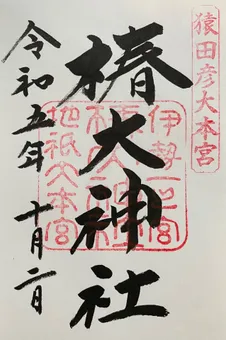 猿田彦大本宮
椿大神社
伊勢一之宮
地祇大本宮
令和五年 十月二日